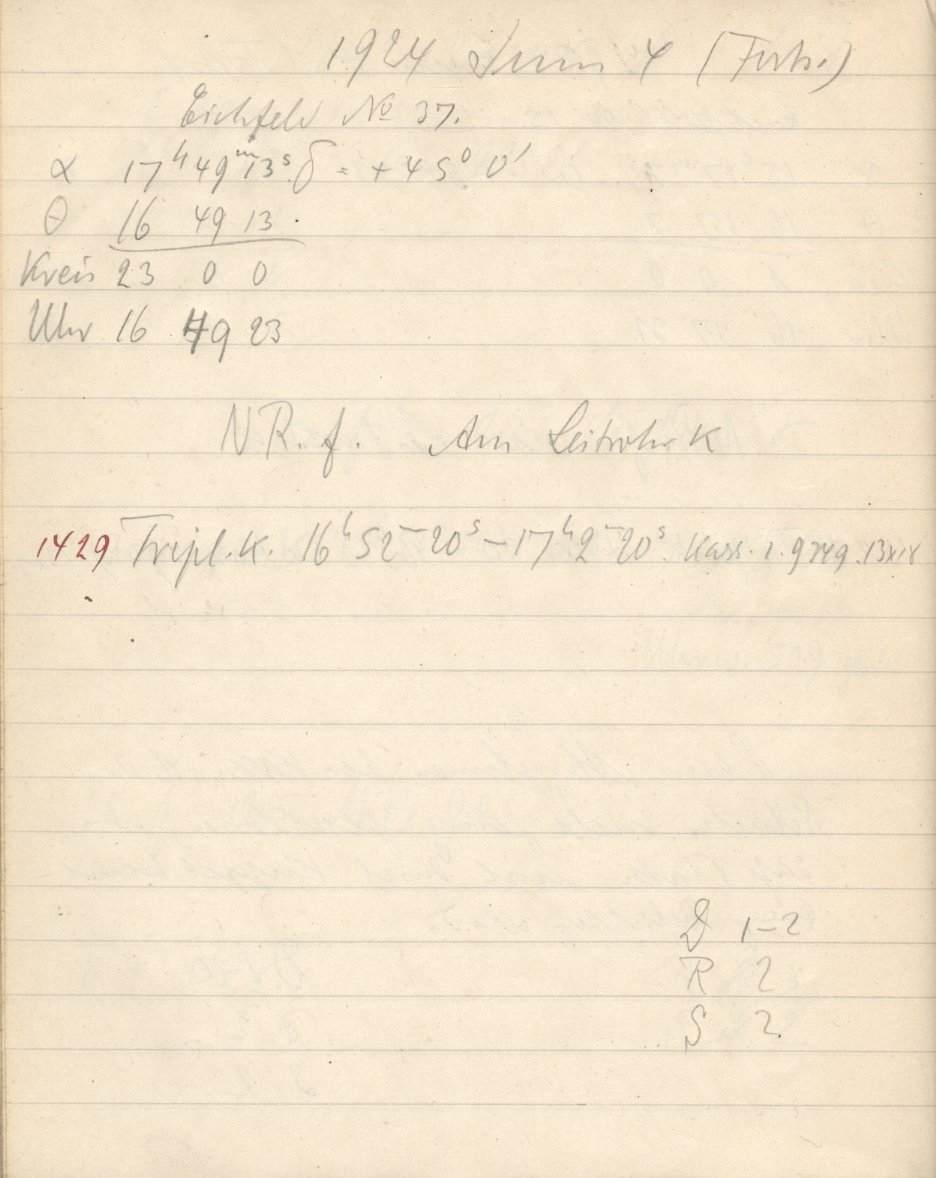 1924 Juni 4 (Forts.)
Eichfeld No 37.
α 17h 49m 13s δ = + 45° 0'
θ 16 49 13.
Kreis 23 0 0
Uhr 16 49 23
NR. f. Am Leitrohr K
1429 Tripl. K. 16h 52m 20s – 17h 2m 20s. Kass. 1. 9 13x18
D 1–2
R 2
S 2